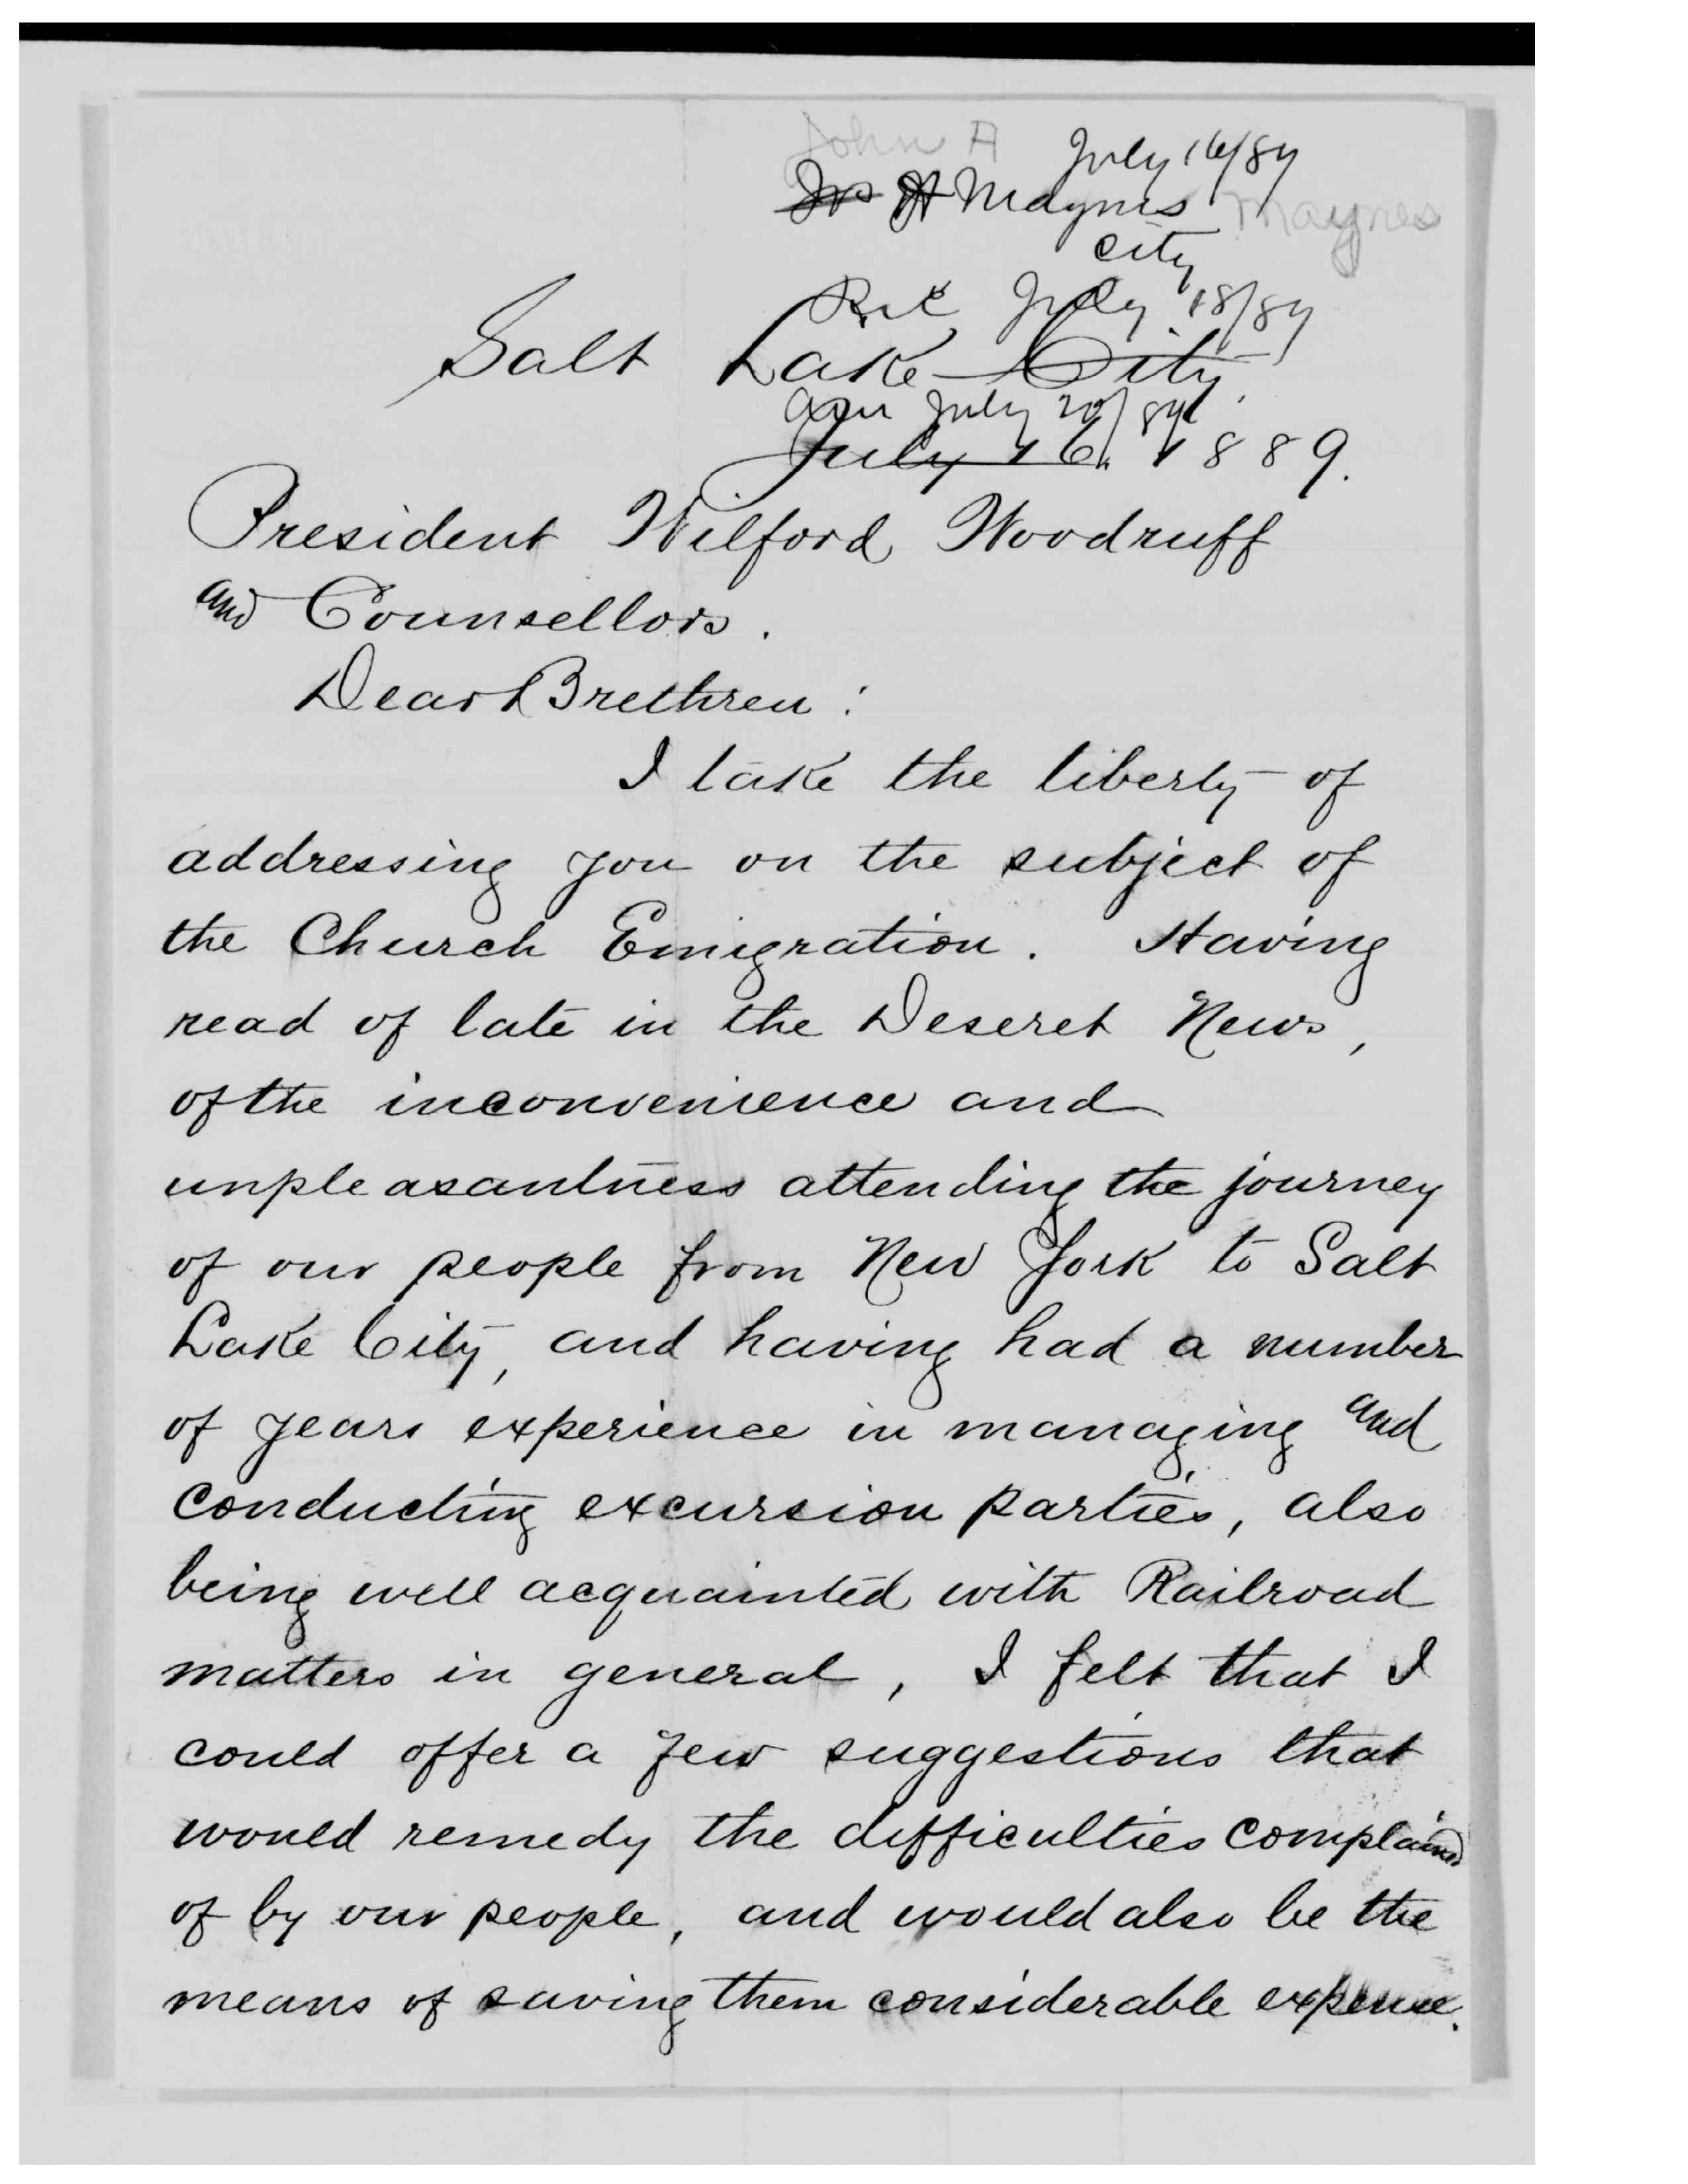 John A
July 16/89
Jos H Maynes Maynes
City
Rec July 18/89
Salt Lake City,
Ans July 20/89
July 16. 1889.
President Wilford Woodruff
and Counsellors.
Dear Brethren:
I take the liberty of
addressing you on the subject of
the Church Emigration. Having
read of late in the Deseret News,
of the inconvenience and
unpleasantness attending the journey
of our people from New York to Salt
Lake City, and having had a number
of years experience in managing and
conducting excursion parties, also
being well acquainted with Railroad
matters in general, I felt that I
could offer a few suggestions that
would remedy the difficulties complained
of by our people, and would also be the
means of saving them considerable expense.